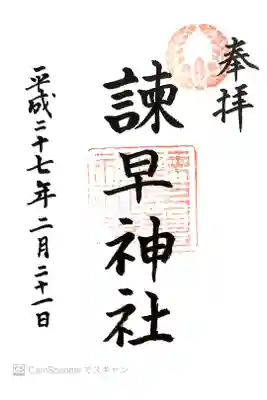 奉拝
諫早神社
平成二十七年二月二十一日
CamScanner でスキャン